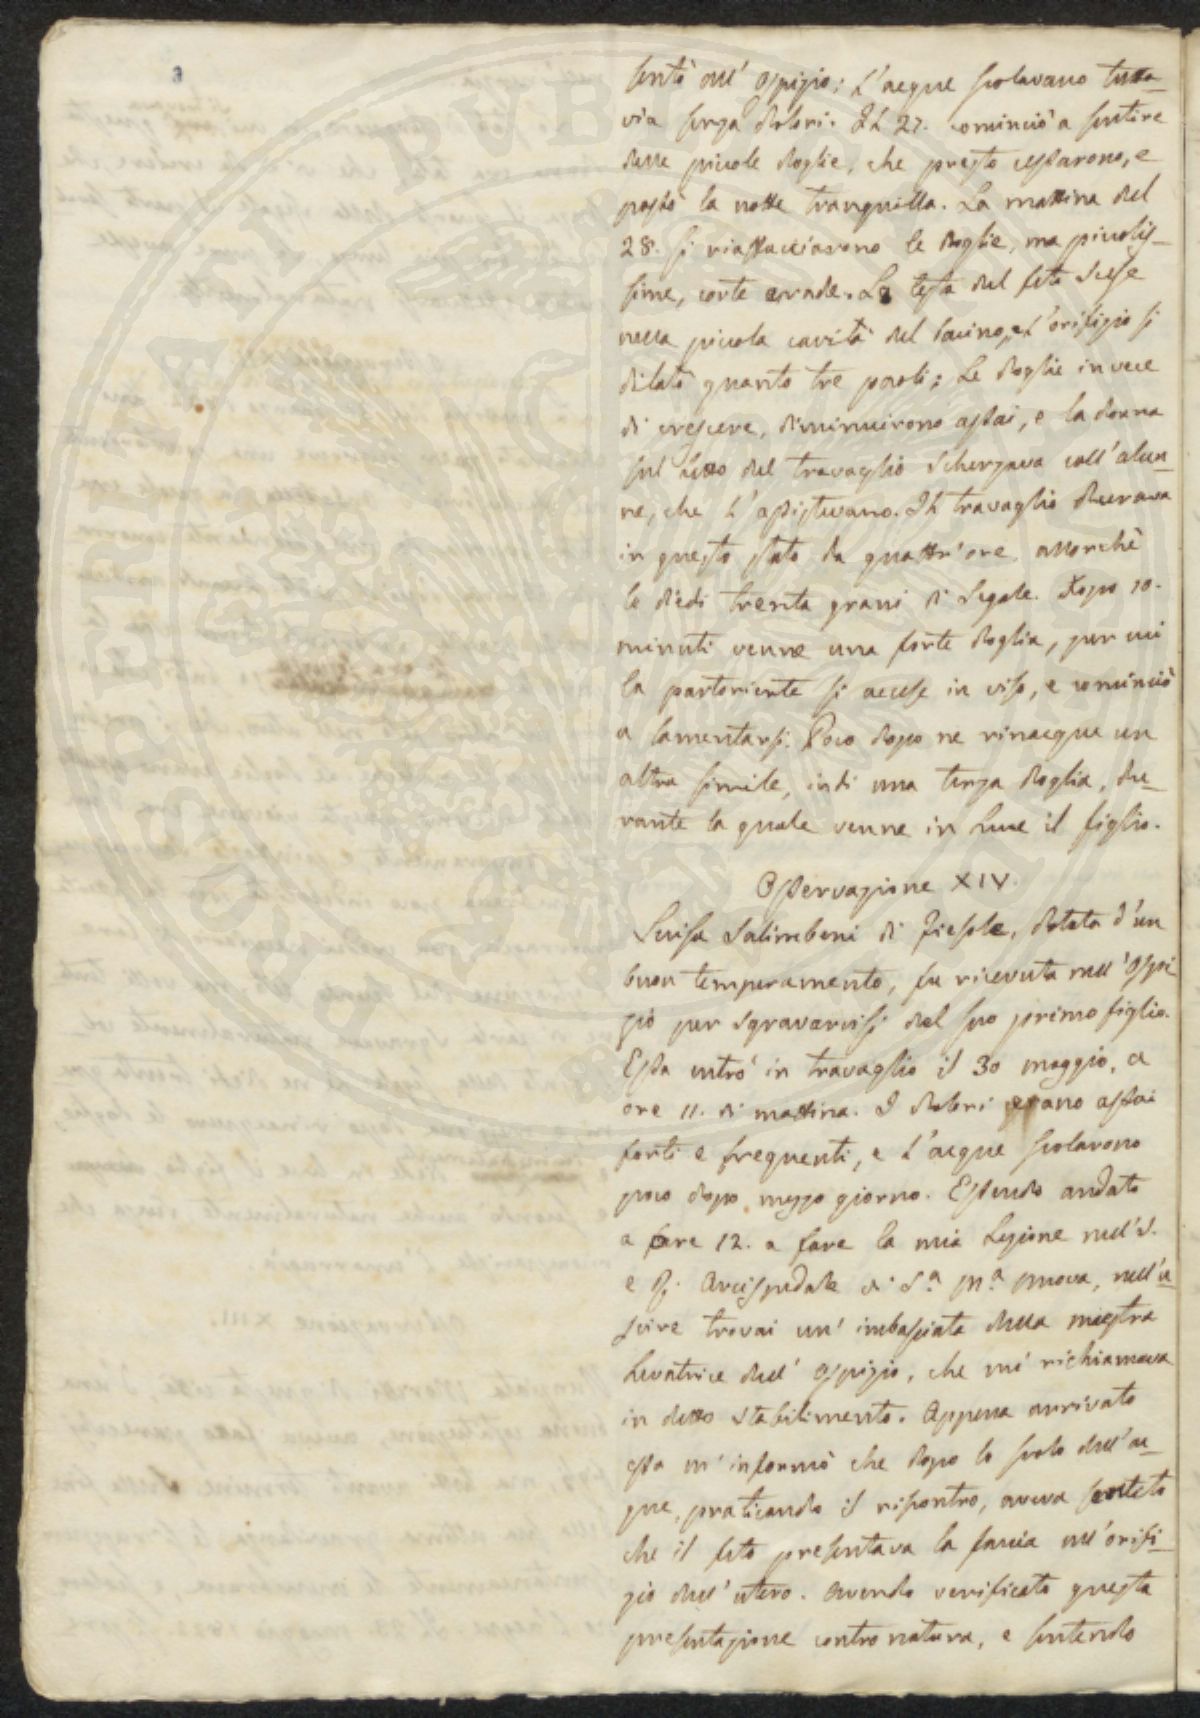 sentò nell' Ospizio; L'acque scolavano tutta-
via senza dolori. Il 27. cominciò a sentire
delle piccole doglie, che presto cessarono, e
passò la notte tranquilla. La mattina del
28. si riaffacciarono le doglie, ma piccolis-
sime, corte e rade. La testa del feto scese
nella piccola cavità del bacino, e l'orifizio si
dilatò quanto tre paoli; Le doglie invece
di crescere, diminuirono assai, e la donna
sul letto del travaglio scherzava coll'alun-
ne, che l'assistevano. Il travaglio durava
in questo stato da quattr'ore allorchè
le diedi trenta grani di segale. Dopo 10.
minuti venne una forte doglia, per cui
la partoriente si accese in viso, e cominciò
a lamentarsi. Poco dopo ne rinacque un
altra simile, indi una terza doglia, du-
rante la quale venne in luce il figlio.
Osservazione XIV.
Luisa Salimbeni di Fiesole, dotata d'un
buon temperamento, fu ricevuta nell'Ospi-
zio per sgravarvisi del suo primo figlio.
Essa entrò in travaglio il 30 maggio, a
ore 11. di mattina. I dolori erano assai
forti e frequenti, e l'acque scolarono
poco dopo mezzo giorno. Essendo andato
a ore 12. a fare la mia Lezione nell'I.
e R. Arcispedale di S.ª M.ª Nuova, nell'u-
scire trovai un' imbasciata della maestra
Levatrice dell' Ospizio, che mi richiamava
in detto stabilimento. Appena arrivato
essa m'informò che dopo lo scolo dell'ac-
que, praticando il riscontro, aveva sentito
che il feto presentava la faccia all'orifi-
zio dell'utero. Avendo verificato questa
presentazione contronatura, e sentendo